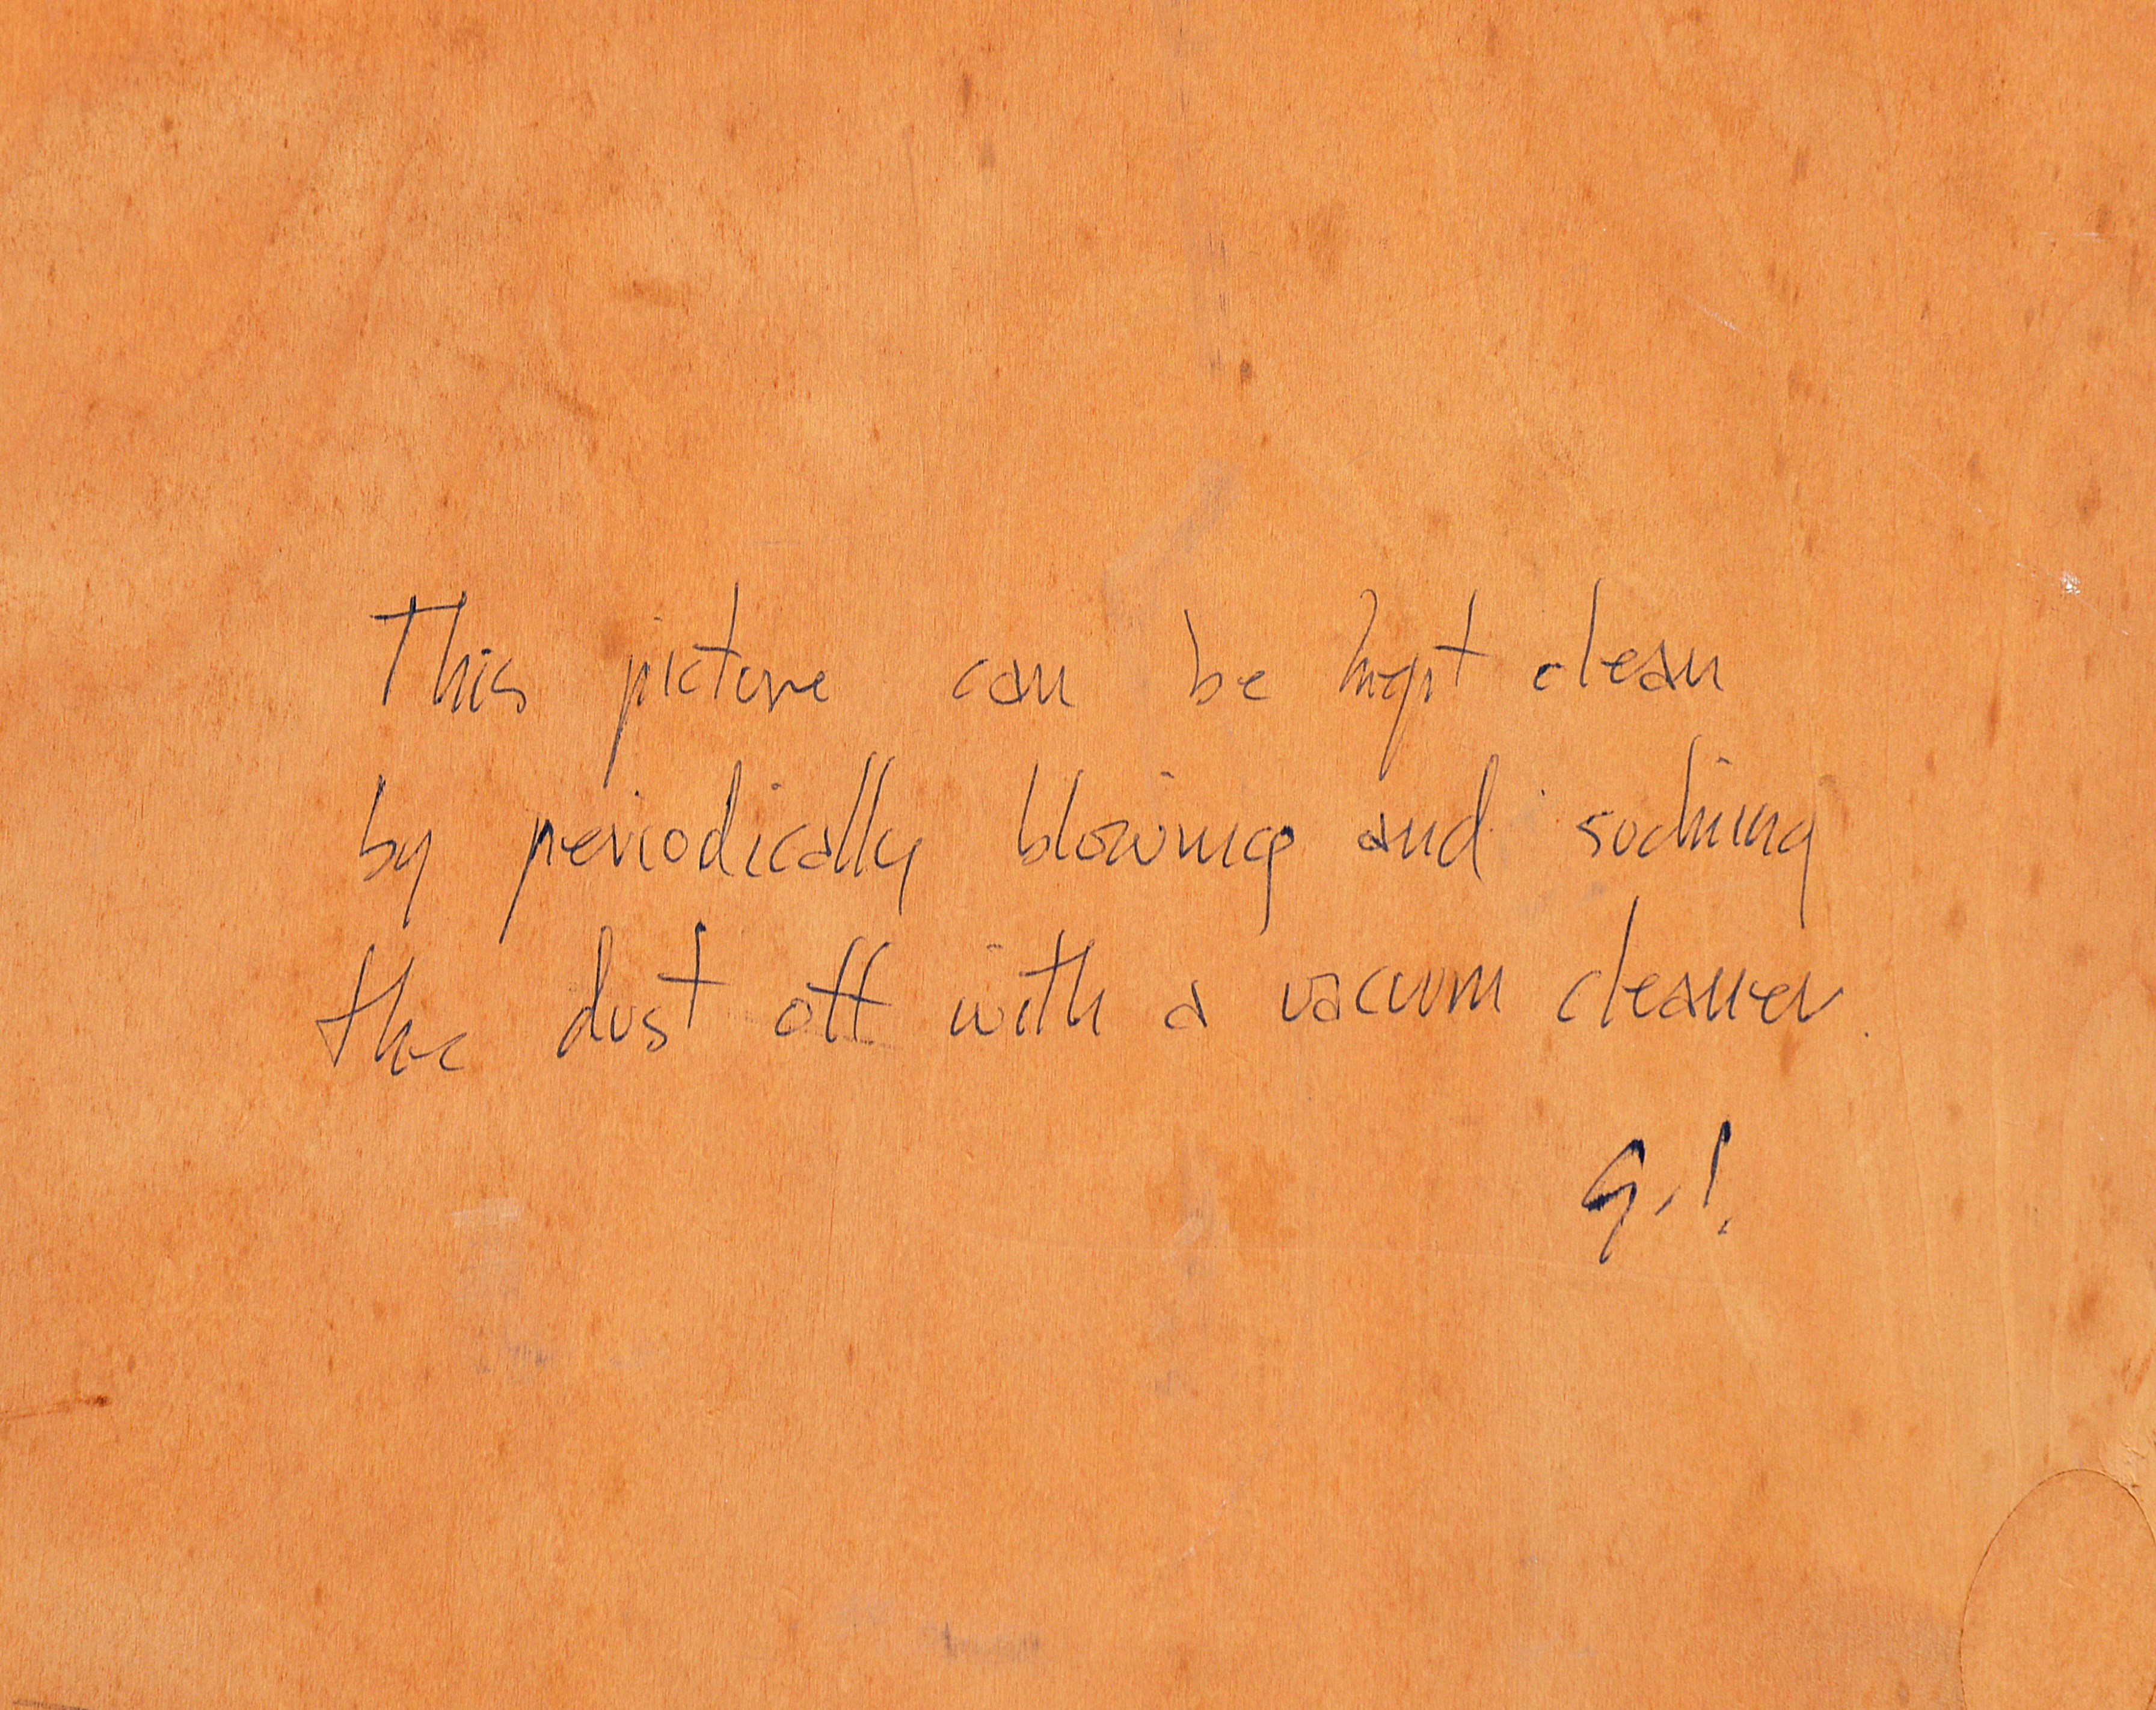 This picture can be kept clean
by periodically blowing and sucking
the dust off with a vacuum cleaner.
G.!